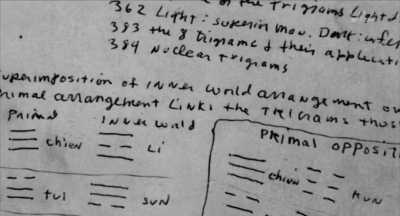 of the Trigrams Light
362 Light: superin mov. Dark: infe
383 the 8 trigrams & their applicati
384 Nuclear trigrams
uperimposition of INNER world arrangement o
rimal arrangement Links the TRIGRAMS thos
Primal INNER world
PRIMAL OPPOSIT
chien Li
chien KUN
tui SUN